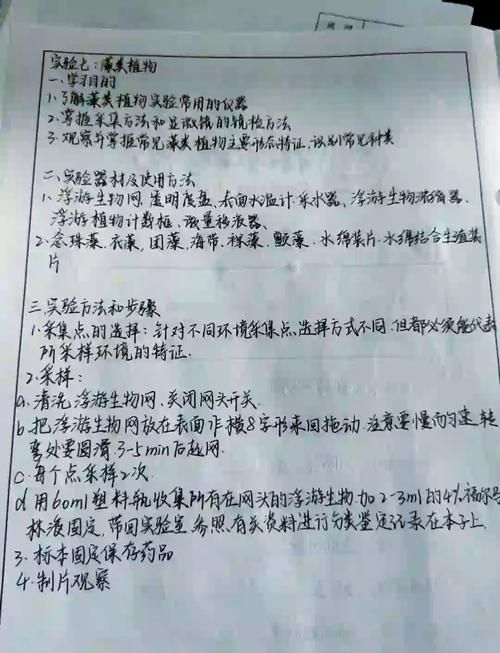 实验七：藻类植物
一.学习目的
1.了解藻类植物实验常用的仪器
2.掌握采集方法和显微镜的镜检方法
3.观察并掌握常见藻类植物主要形态特征，识别常见种类
二.实验器材及使用方法
1.浮游生物网、透明度盘、表面水温计、采水器、浮游生物浓缩器、
浮游植物计数框、微量移液器、
2.念珠藻、衣藻、团藻、海带、裸藻、甑藻、水绵装片、水绵结合生殖装
片
三.实验方法和步骤
1.采集点的选择：针对不同环境采集点选择方式不同，但都必须能代表
所采样环境的特征.
2.采样：
a.清洗浮游生物网、关闭网头开关.
b.把浮游生物网放在表面作横8字形来回拖动.注意要慢而匀速，转
弯处要圆滑.3-5min后起网.
c.每个点采样2次.
d.用60ml塑料瓶收集所有在网头的浮游生物加2-3ml的4%福尔马
林液固定，带回实验室.参照有关资料进行分类鉴定记录在本子上.
3.标本固定保存药品
4.制片观察